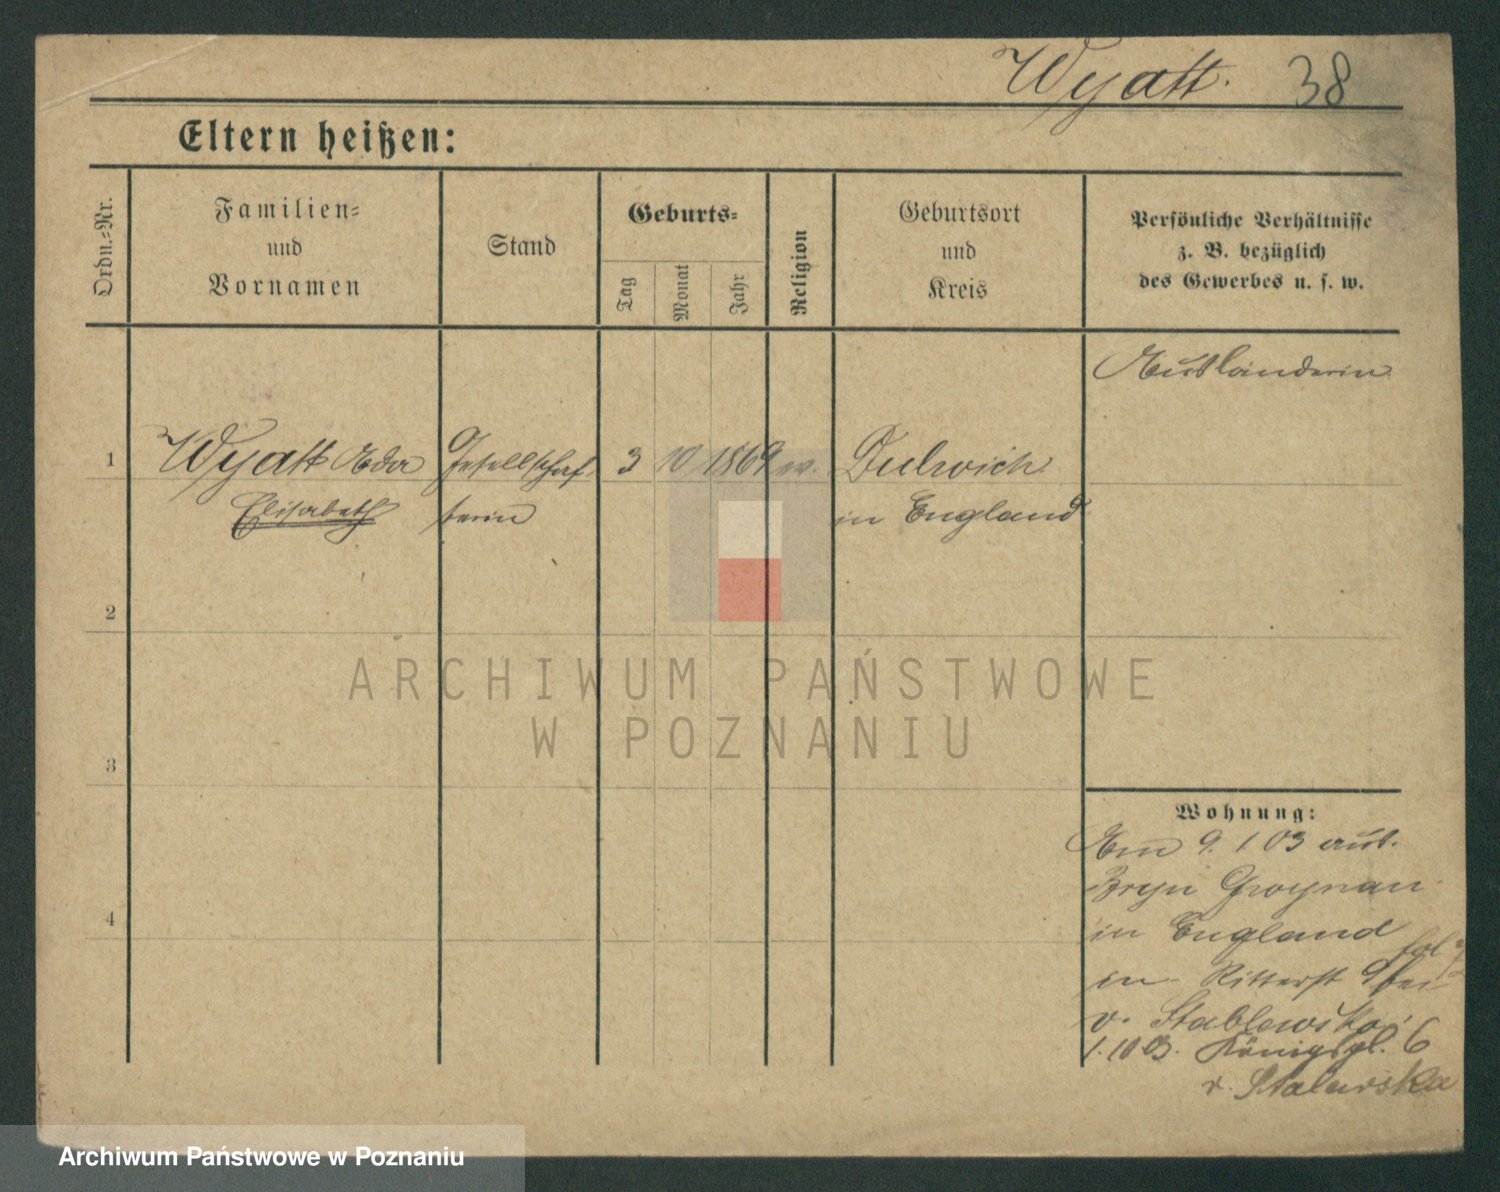 Wyatt. 38
Eltern heißen:
Ordn.-Nr.
Familien-
und
Vornamen
Stand
Geburts-
Tag
Monat
Jahr
Religion
Geburtsort
und
Kreis
Persönliche Verhältnisse
z. B. bezüglich
des Gewerbes u. s. w.
Ausländerin
1 Wyatt Ada Gesellschaf- 3 10 1869 ev. Dulwich
Elisabeth terin in England
2
ARCHIWUM PAŃSTWOWE
W POZNANIU
3
Wohnung:
Am 9. 1. 03 aus.
Bryn
in England
in Ritterst 9 bei
v. Stablewska;
1. 10 03. Königspl. 6
v. Stalewska
4
Archiwum Państwowe w Poznaniu